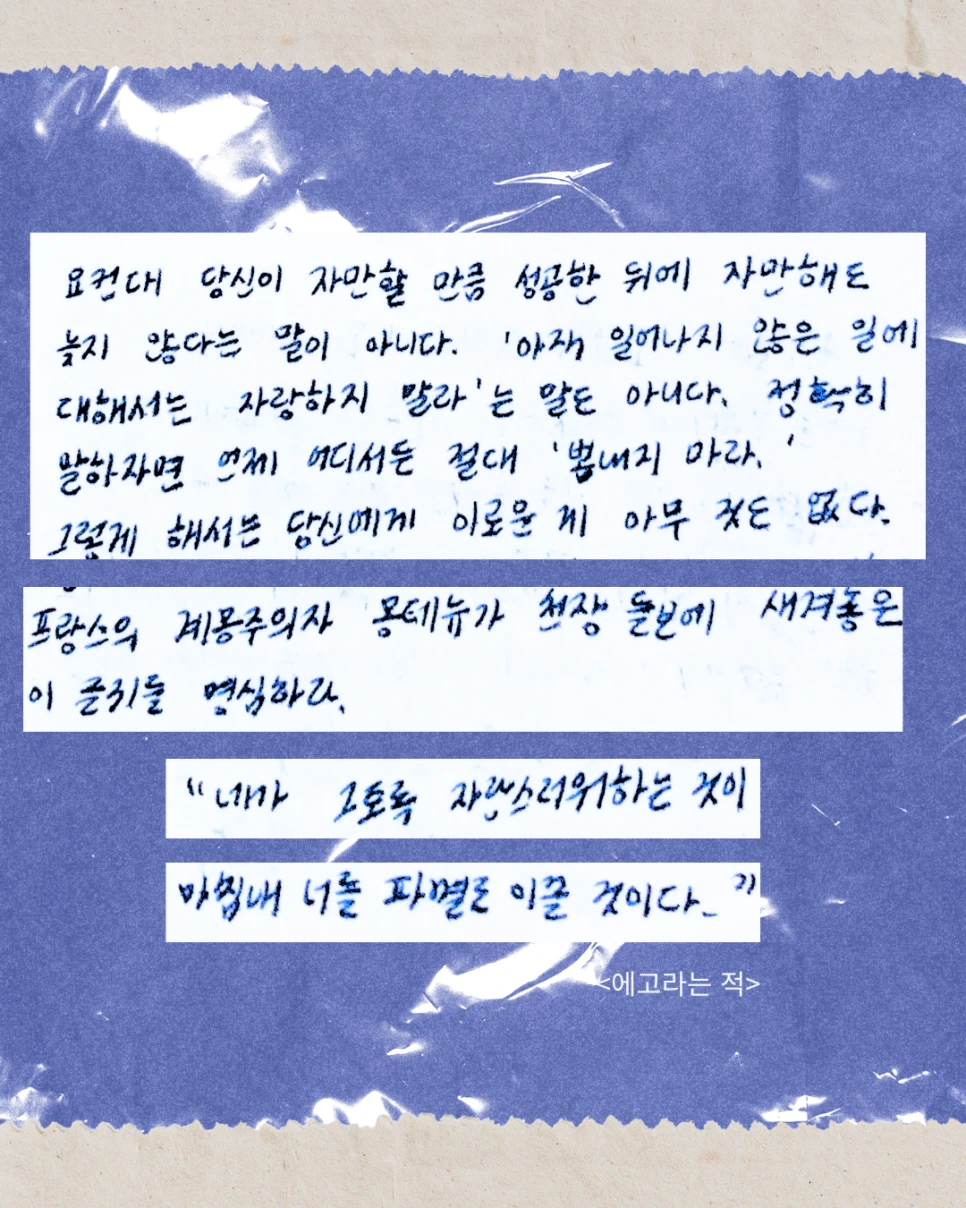 요컨대 당신이 자만할 만큼 성공한 뒤에 자만해도
늦지 않다는 말이 아니다. '아직 일어나지 않은 일에
대해서는 자랑하지 말라'는 말도 아니다. 정확히
말하자면 언제 어디서든 절대 '뽐내지 마라.'
그렇게 해서는 당신에게 이로운 게 아무 것도 없다.
프랑스의 계몽주의자 몽테뉴가 천장 들보에 새겨놓은
이 글귀를 명심하라.
"네가 그토록 자랑스러워하는 것이
마침내 너를 파멸로 이끌 것이다."
<에고라는 적>